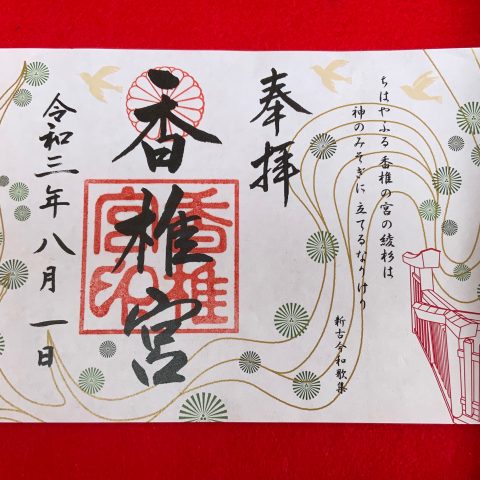 ちはやふる 香椎の宮の綾杉は
神のみそぎに 立てるなりけり
新古今和歌集
奉拝
香椎宮
香椎宮印
令和三年八月一日